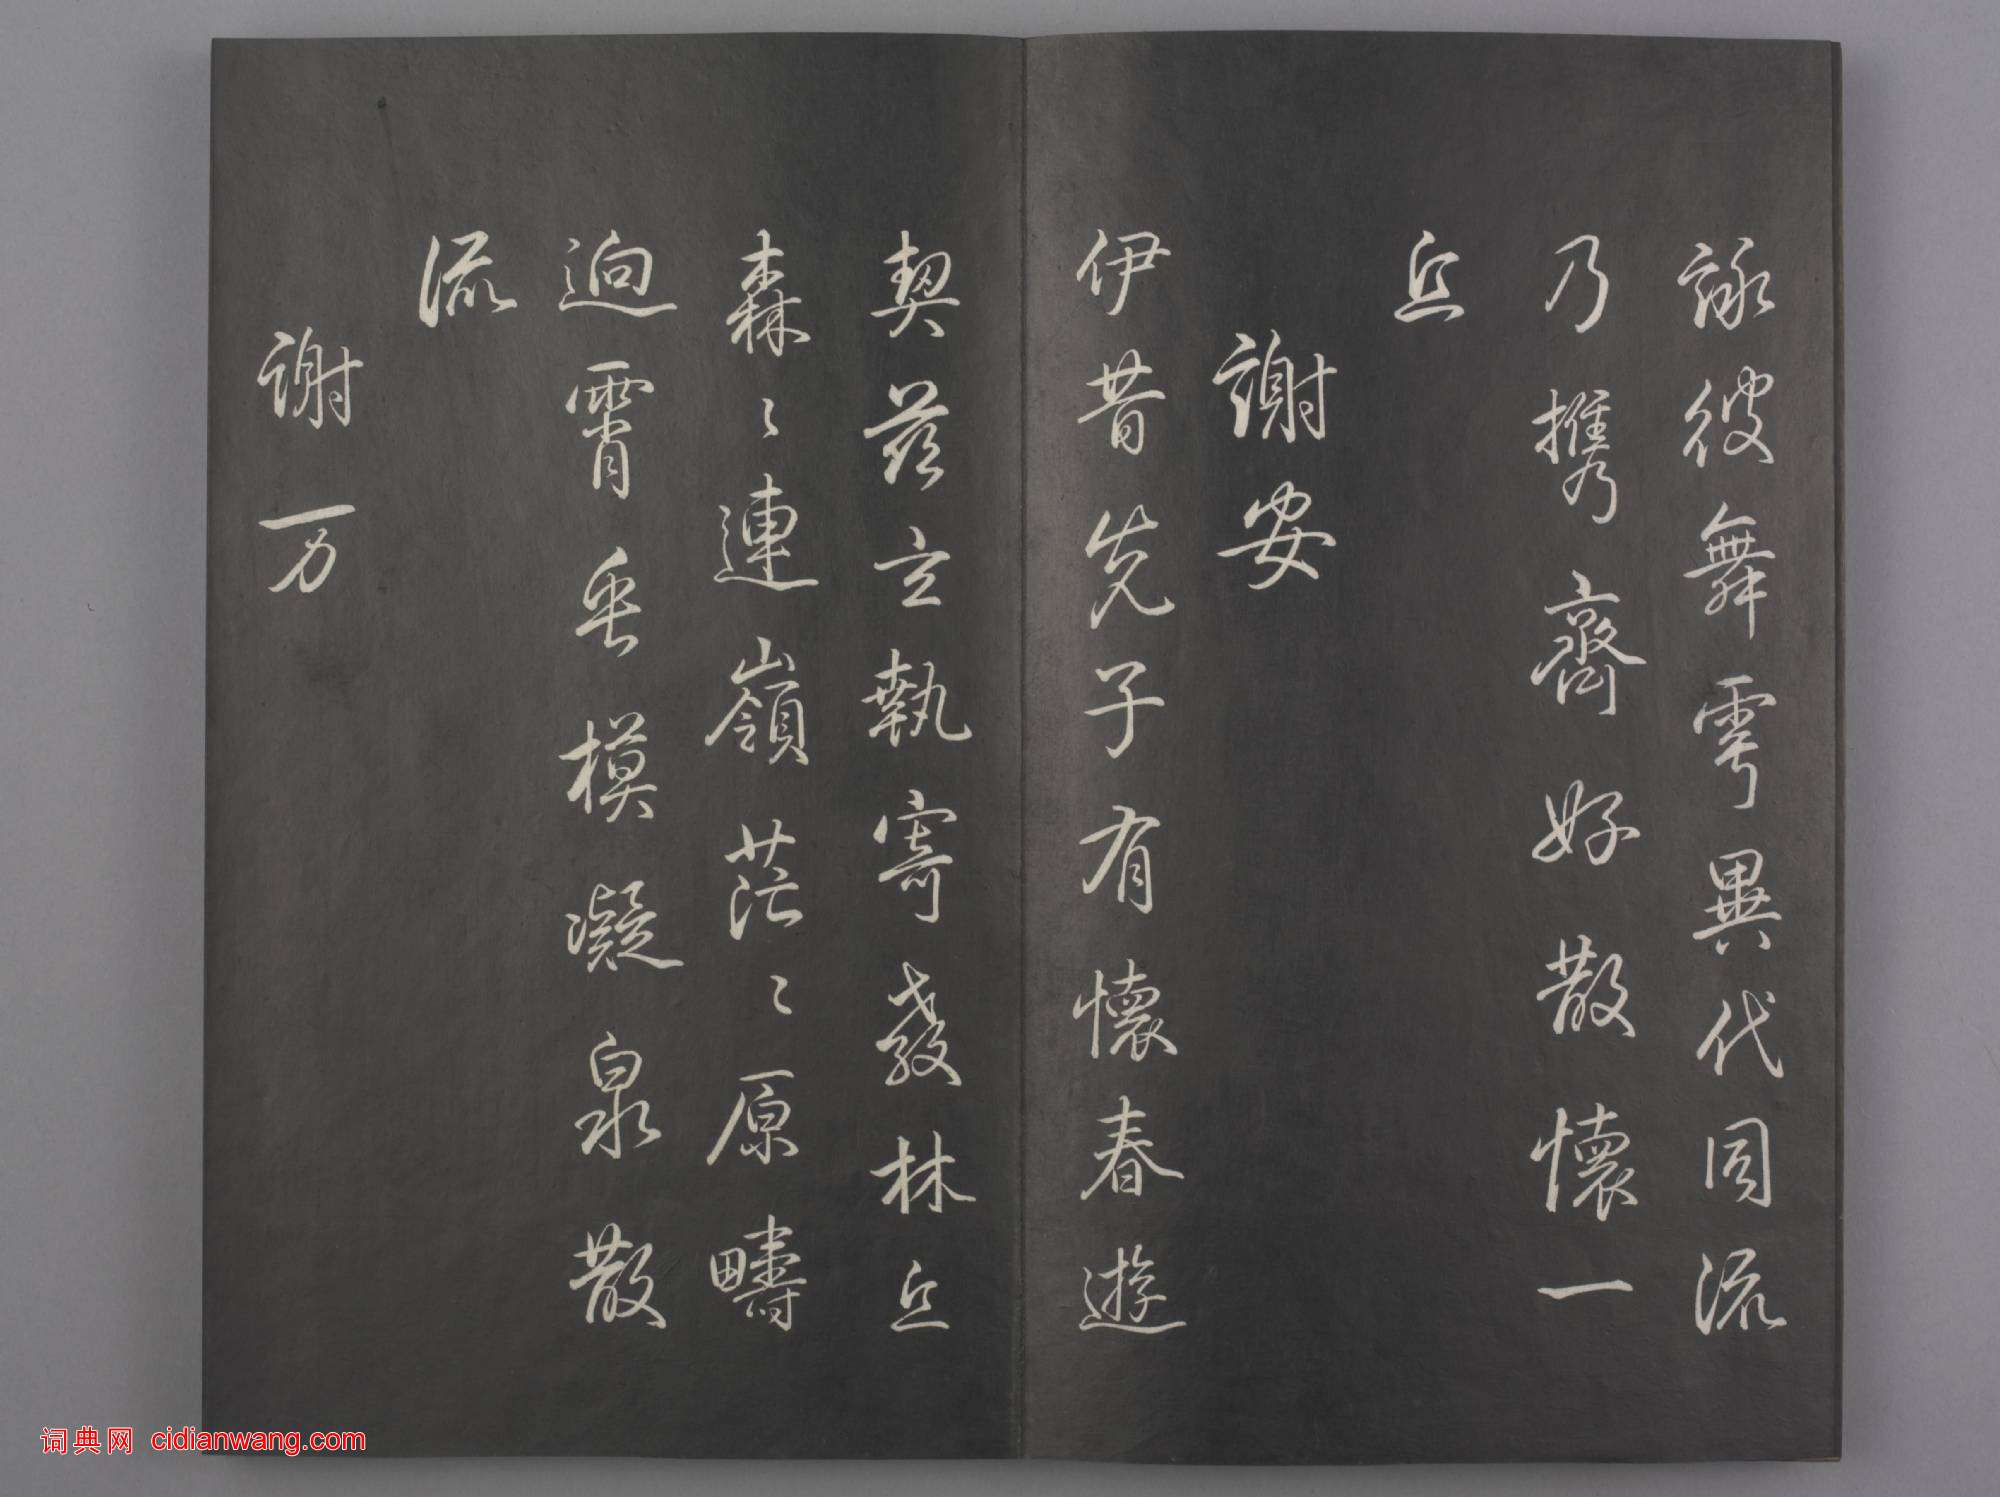 詠彼舞雩異代同流
乃携齊好散懷一
丘
謝安
伊昔先子有懷春遊
契茲言執寄敖林丘
森〻連嶺茫〻原疇
逈霄垂模凝泉散
流
謝万
词典网 cidianwang.com